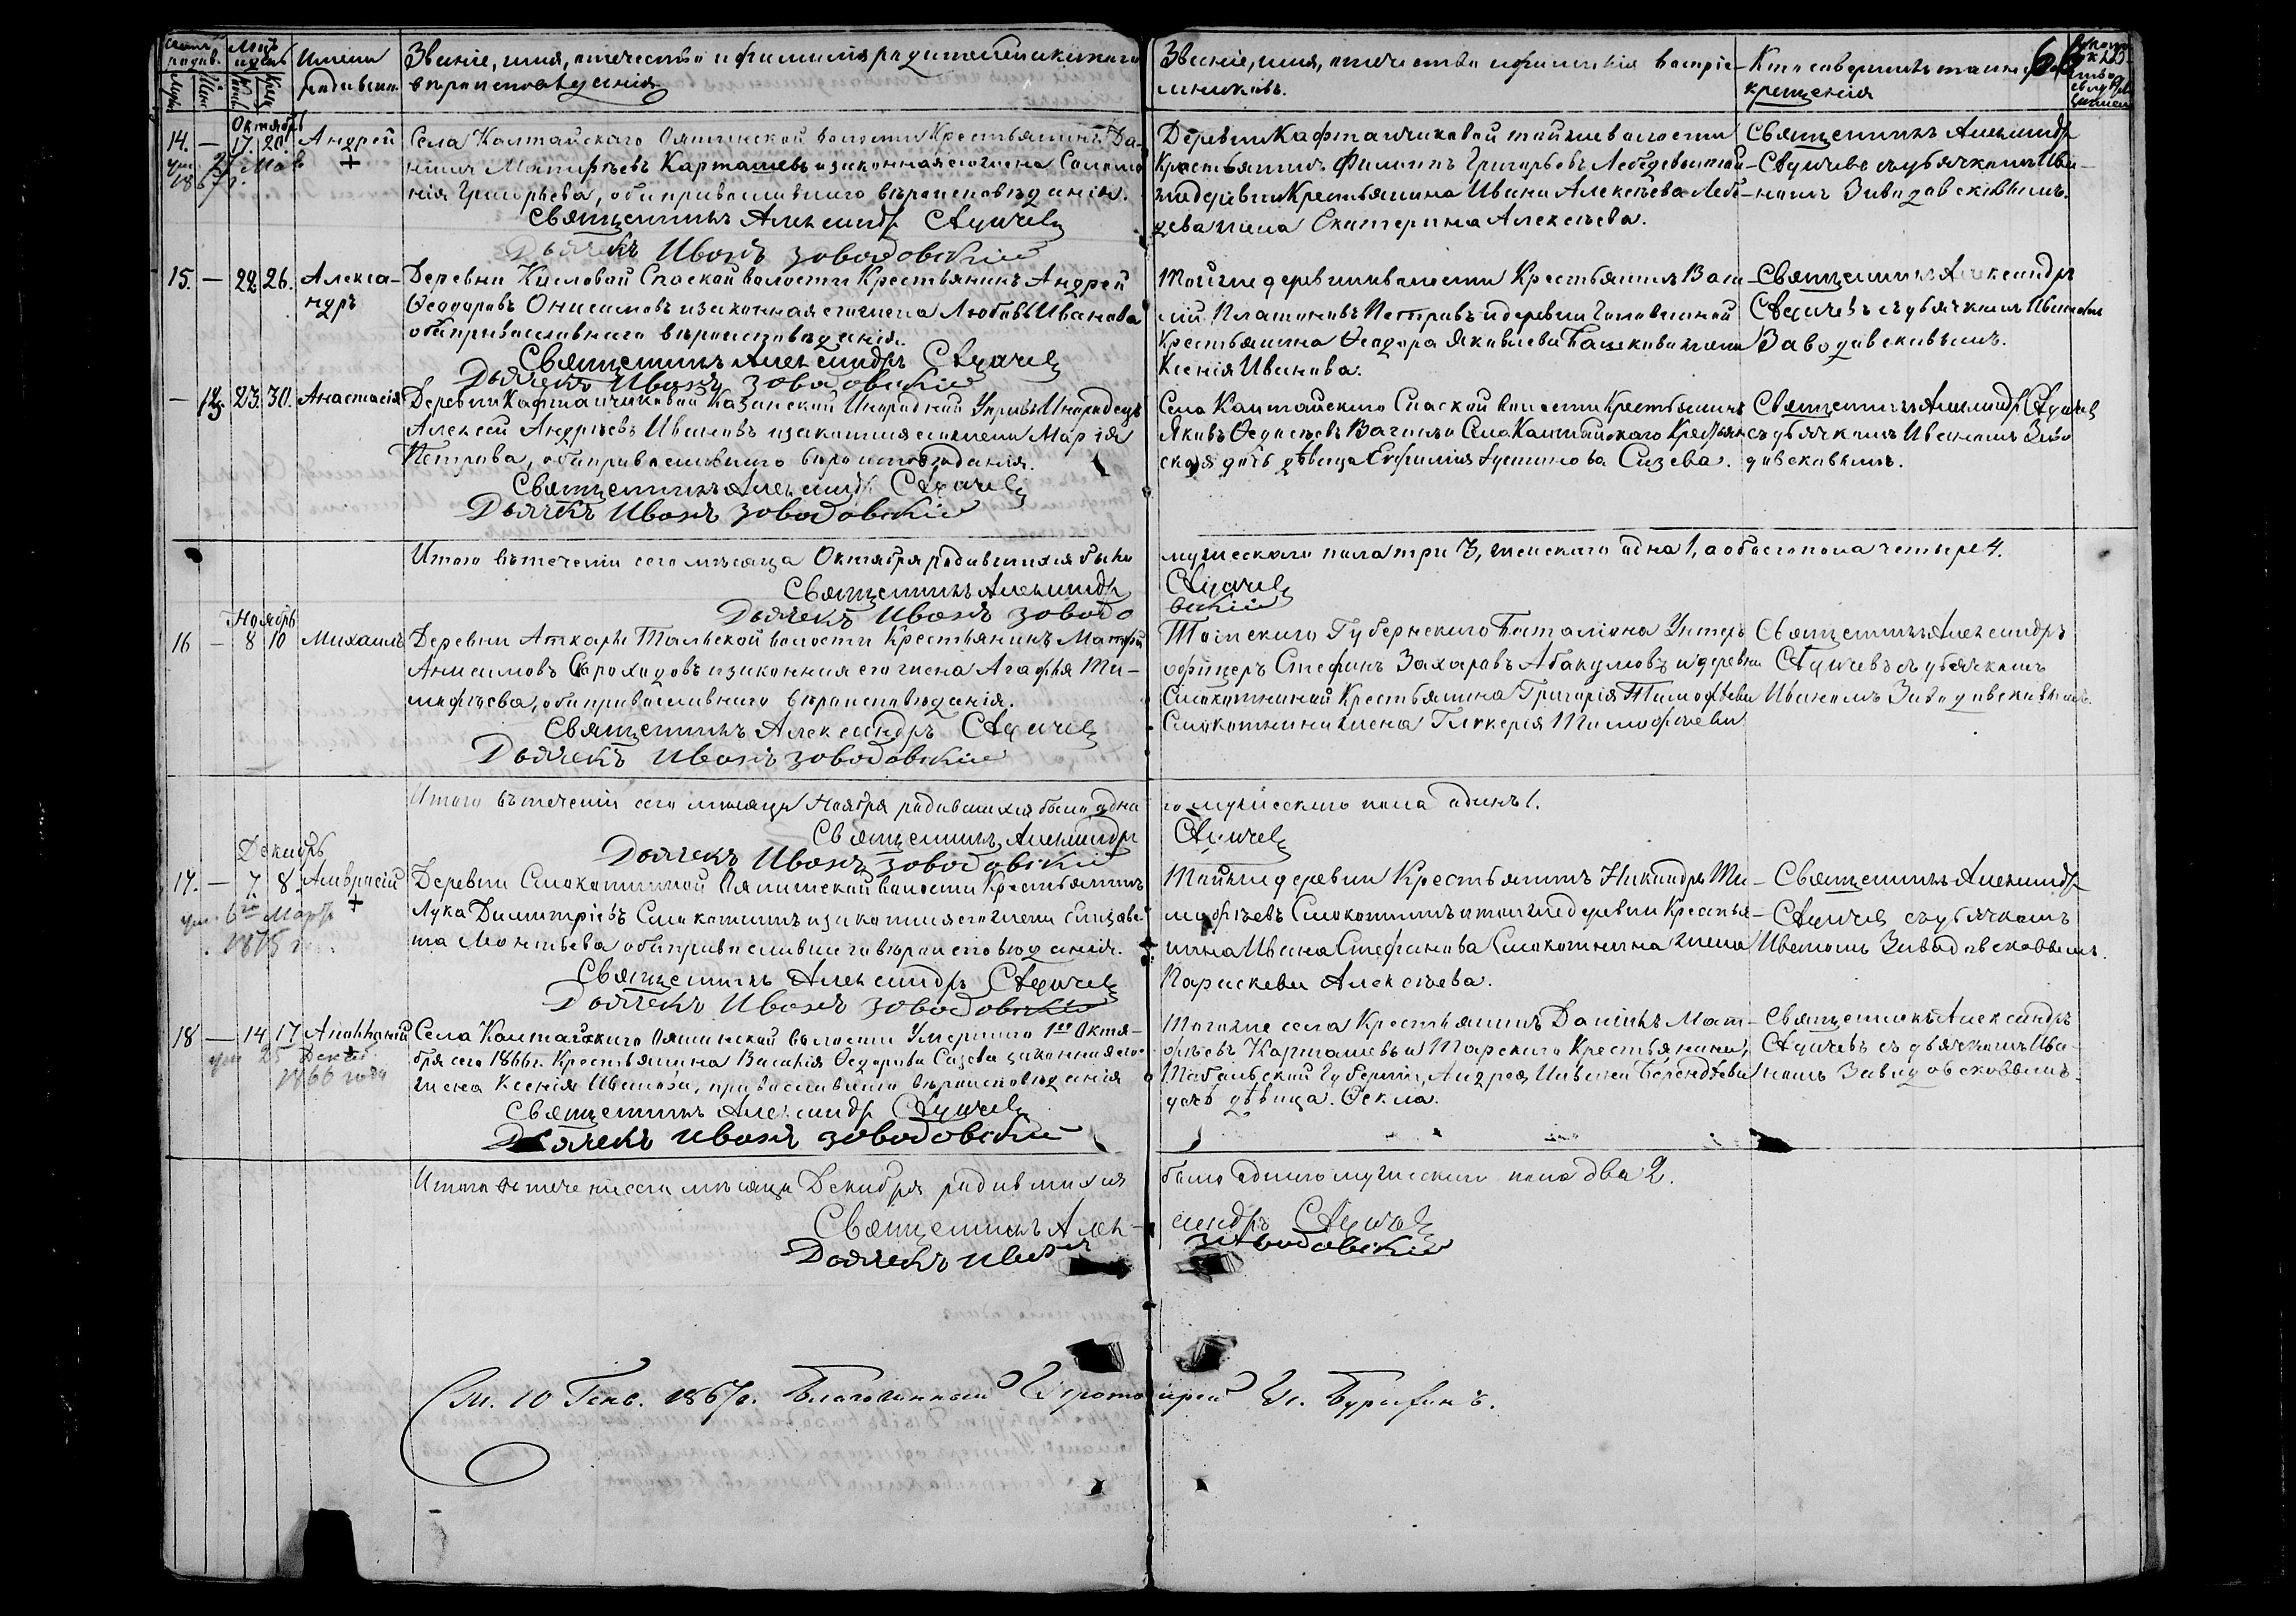 Счетъ родив.
Мѣсяцъ и день
Имена родившихся.
Званіе, имя, отчество и фамилія родителей и какого
вѣроисповѣданія
Званіе, имя, отчество и фамилія воспріе-
мниковъ.
Кто совершилъ таинство
крещенія
Октябрь
14. — 17. 20. Андрей
+
ум. 27 Мая
1867 г.
Села Калтайскаго Ояшинской волости Крестьянинъ Да-
ніилъ Матѳѣевъ Карташевъ и законная его жена Соломо
нія Григорьева, оба православнаго вѣроисповѣданія.
Священникъ Александръ
Дьячекъ Иванъ Заводовскій
Деревни Кафтанчиковой тойже волости
Крестьянинъ Филиппъ Григорьевъ Лебедевъ и той-
же деревни Крестьянина Ивана Алексѣева Лебе-
дева жена Екатерина Алексѣева.
Священникъ Александръ
съ дьячкомъ Ива-
номъ Заводовскимъ.
15. — 22 26. Алекса-
ндръ
Деревни Кисловой Спаской волости Крестьянинъ Андрей
Ѳеодоровъ Онисимовъ и законная его жена Любовь Иванова
оба православнаго вѣроисповѣданія.
Священникъ Александръ
Дьячекъ Иванъ Заводовскій
Тойже деревни и волости Крестьянинъ Васи-
лій Платоновъ Петровъ и деревни Головиной
Крестьянина Ѳеодора Яковлева жена
Ксенія Иванова.
Священникъ Александръ
съ дьячкомъ Иваномъ
Заводовскимъ.
— 4. 23. 30. Анастасія
Деревни Кафтанчиковой Казанской Инородной Управы Инородецъ
Алексѣй Андреевъ Ивановъ и законная его жена Марія
Петрова, оба православнаго вѣроисповѣданія.
Священникъ Александръ
Дьячекъ Иванъ Заводовскій
Села Калтайскаго Спаской волости Крестьянинъ
Яковъ Ѳедосѣевъ и Села Калтайскаго Крестьян
ская дочь дѣвица Евфимія Устинова Сизева.
Священникъ Александръ
съ дьячкомъ Иваномъ Заво
довскимъ.
Итого въ теченіи сего мѣсяца Октября родившихся было
мужескаго пола три 3, женскаго одна 1, а обоего пола четыре 4.
Священникъ Александръ
Дьячекъ Иванъ Заводо
вскій
Ноябрь
16 — 8 10 Михаилъ
Деревни Тальской волости Крестьянинъ Матѳей
Анисимовъ Скороходовъ и законная его жена Агафья Ти-
мофѣева, оба православнаго вѣроисповѣданія.
Священникъ Александръ
Дьячекъ Иванъ Заводовскій
Томскаго Губернскаго Баталіона Унтеръ
офицеръ Стефанъ Захаровъ Абакумовъ и деревни
Смокотниной Крестьянина Григорія Тимофѣева
Смокотнина жена Гликерія Тимофѣева
Священникъ Александръ
съ дьячкомъ
Иваномъ Заводовскимъ.
Итого въ теченіи сего мѣсяца Ноября родившихся было одна
го мужескаго пола одинъ 1.
Священникъ Александръ
Дьячекъ Иванъ Заводовскій
Декабрь
17. — 7. 8. Амвросій
+
ум. 6го Марта
1875 г.
Деревни Смокотиной Ояшинской волости Крестьянинъ
Лука Димитріевъ Смокотинъ и законная его жена Елизаве-
та Моисѣева оба православнаго вѣроисповѣданія.
Священникъ Александръ
Дьячекъ Иванъ Заводовскій
Тойже деревни Крестьянинъ Никандръ Ти-
мофѣевъ Смокотинъ и тойже деревни Крестья-
нина Ивана Стефанова Смокотнина жена
Параскева Алексѣева.
Священникъ Александръ
съ дьячкомъ
Иваномъ Заводовскимъ.
18 — 14 17
ум 25 Декаб.
1866 года
Села Калтайскаго Ояшинской волости Умершаго 1го Октя-
бря сего 1866 г. Крестьянина Василія Ѳедорова Сизева законная его
жена Ксенія Иванова, православнаго вѣроисповѣданія
Священникъ Александръ
Дьячекъ Иванъ Заводовскій
Тогоже села Крестьянинъ Даніилъ Мат-
ѳѣевъ Карташевъ и Тарскаго Крестьянина,
Тобольской Губерніи, Андрея Иванова Берендѣева
дочь дѣвица Ѳекла.
Священникъ Александръ
съ дьячкомъ Ива-
номъ Заводовскимъ
Итого въ теченіи сего мѣсяца Декабря родившихся
было одного мужескаго пола два 2.
Священникъ Алек-
сандръ
Дьячекъ Иванъ
Заводовскій
10 Генв. 1867 г. Благочинный Протоіерей